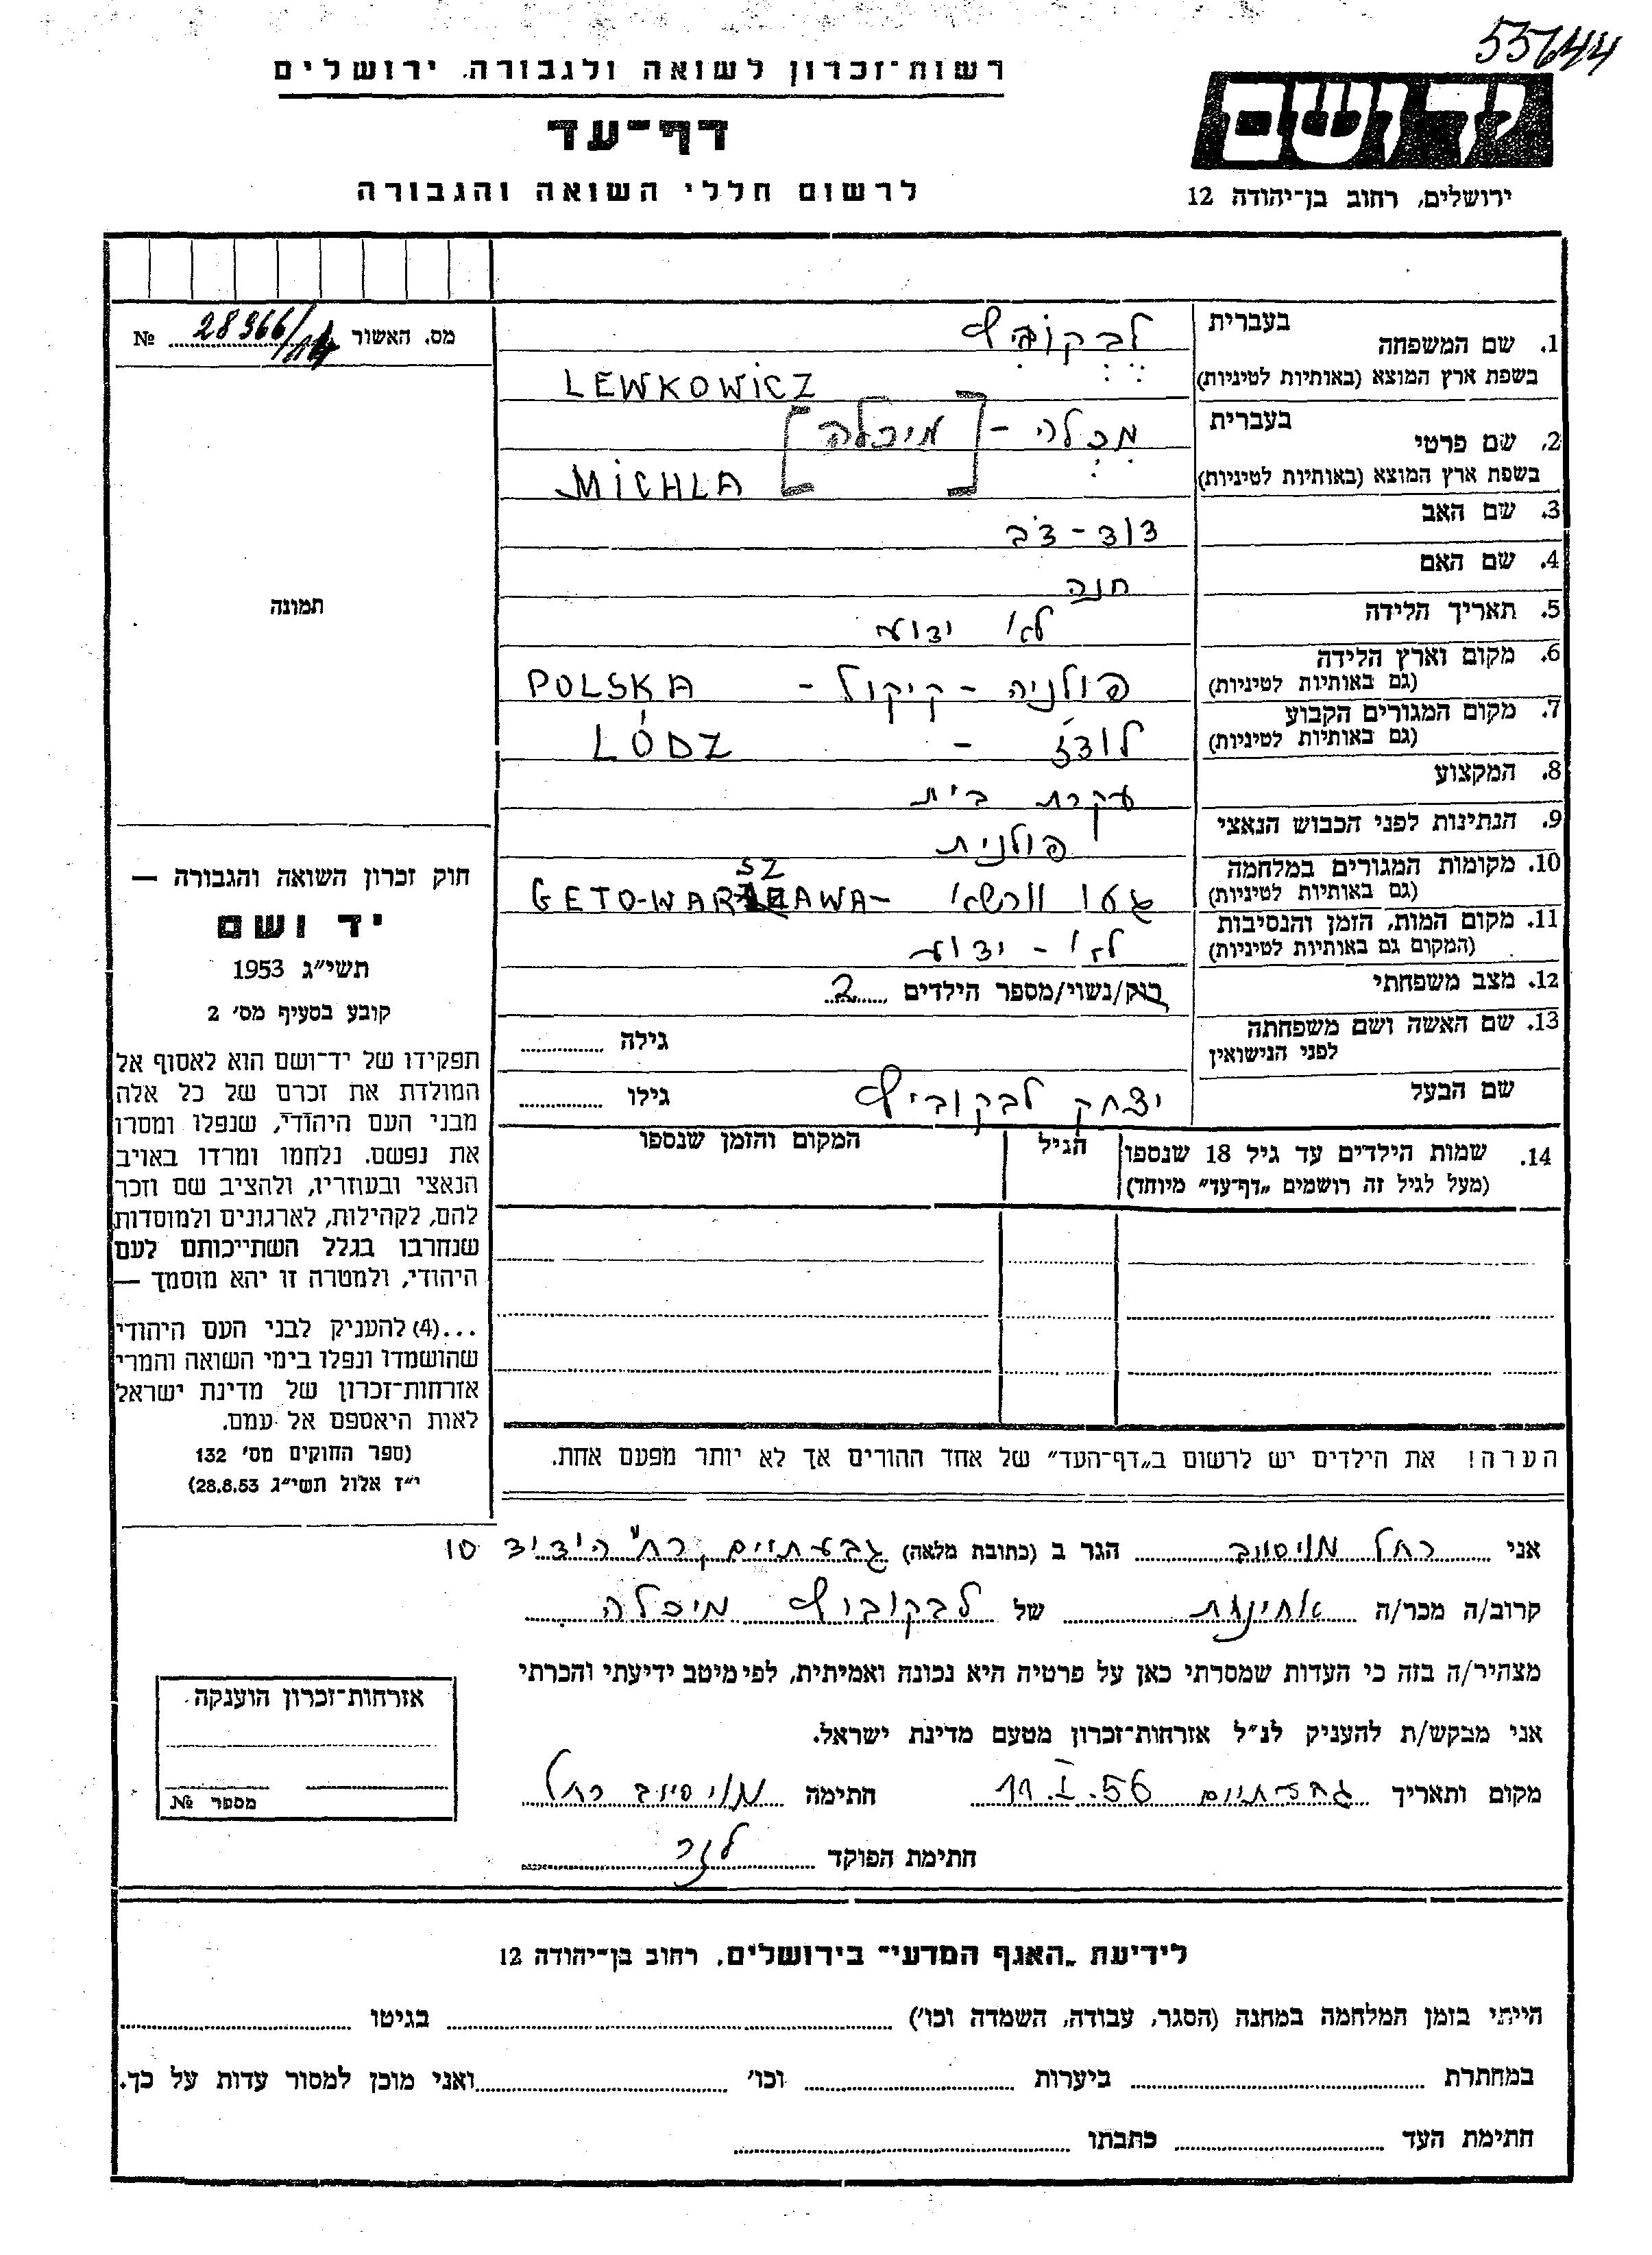 55644
רשות־זכרון לשואה ולגבורה, ירושלים
דף־עד
לרשום חללי השואה והגבורה
יד ושם
ירושלים, רחוב בן־יהודה 12
מס. האשור 28366/ №
תמונה
1. שם המשפחה בעברית לבקוביץ
בשפת ארץ המוצא (באותיות לטיניות) LEWKOWICZ
2. שם פרטי בעברית מכלה - [מיכלה]
בשפת ארץ המוצא (באותיות לטיניות) MICHLA
3. שם האב דוד - דב
4. שם האם חנה
5. תאריך הלידה לא ידוע
6. מקום וארץ הלידה פולניה - קיקול - POLSKA
(גם באותיות לטיניות)
7. מקום המגורים הקבוע לודז - LÓDZ
(גם באותיות לטיניות)
8. המקצוע עקרת בית
9. הנתינות לפני הכבוש הנאצי פולנית
10. מקומות המגורים במלחמה גטו וורשא - GETO-WARSZAWA
(גם באותיות לטיניות)
11. מקום המות, הזמן והנסיבות לא - ידוע
(המקום גם באותיות לטיניות)
12. מצב משפחתי רוק/נשוי/מספר הילדים 2
13. שם האשה ושם משפחתה גילה
לפני הנישואין
שם הבעל יצחק לבקוביץ גילו
14. שמות הילדים עד גיל 18 שנספו הגיל המקום והזמן שנספו
(מעל לגיל זה רושמים „דף־עד" מיוחד)
הערה! את הילדים יש לרשום ב„דף־העד" של אחד ההורים אך לא יותר מפעם אחת.
חוק זכרון השואה והגבורה —
יד ושם
תשי"ג 1953
קובע בסעיף מס' 2
תפקידו של יד־ושם הוא לאסוף אל
המולדת את זכרם של כל אלה
מבני העם היהודי, שנפלו ומסרו
את נפשם, נלחמו ומרדו באויב
הנאצי ובעוזריו, ולהציב שם וזכר
להם, לקהילות, לארגונים ולמוסדות
שנחרבו בגלל השתייכותם לעם
היהודי, ולמטרה זו יהא מוסמך —
...(4) להעניק לבני העם היהודי
שהושמדו ונפלו בימי השואה והמרי
אזרחות־זכרון של מדינת ישראל
לאות היאספם אל עמם.
(ספר החוקים מס' 132
י"ז אלול תשי"ג 28.8.53)
אני רחל הגר ב (כתובת מלאה) גבעתיים רח' הידיד 10
קרוב/ה מכר/ה אחינית של לבקוביץ מיכלה
מצהיר/ה בזה כי העדות שמסרתי כאן על פרטיה היא נכונה ואמיתית, לפי מיטב ידיעתי והכרתי
אני מבקש/ת להעניק לנ"ל אזרחות־זכרון מטעם מדינת ישראל.
מקום ותאריך גבעתיים 11.I.56 חתימה רחל
חתימת הפוקד
אזרחות־זכרון הוענקה
מספר №
לידיעת „האגף המדעי" בירושלים, רחוב בן־יהודה 12
הייתי בזמן המלחמה במחנה (הסגר, עבודה, השמדה וכו') בגיטו
במחתרת ביערות וכו' ואני מוכן למסור עדות על כך.
חתימת העד כתבתו